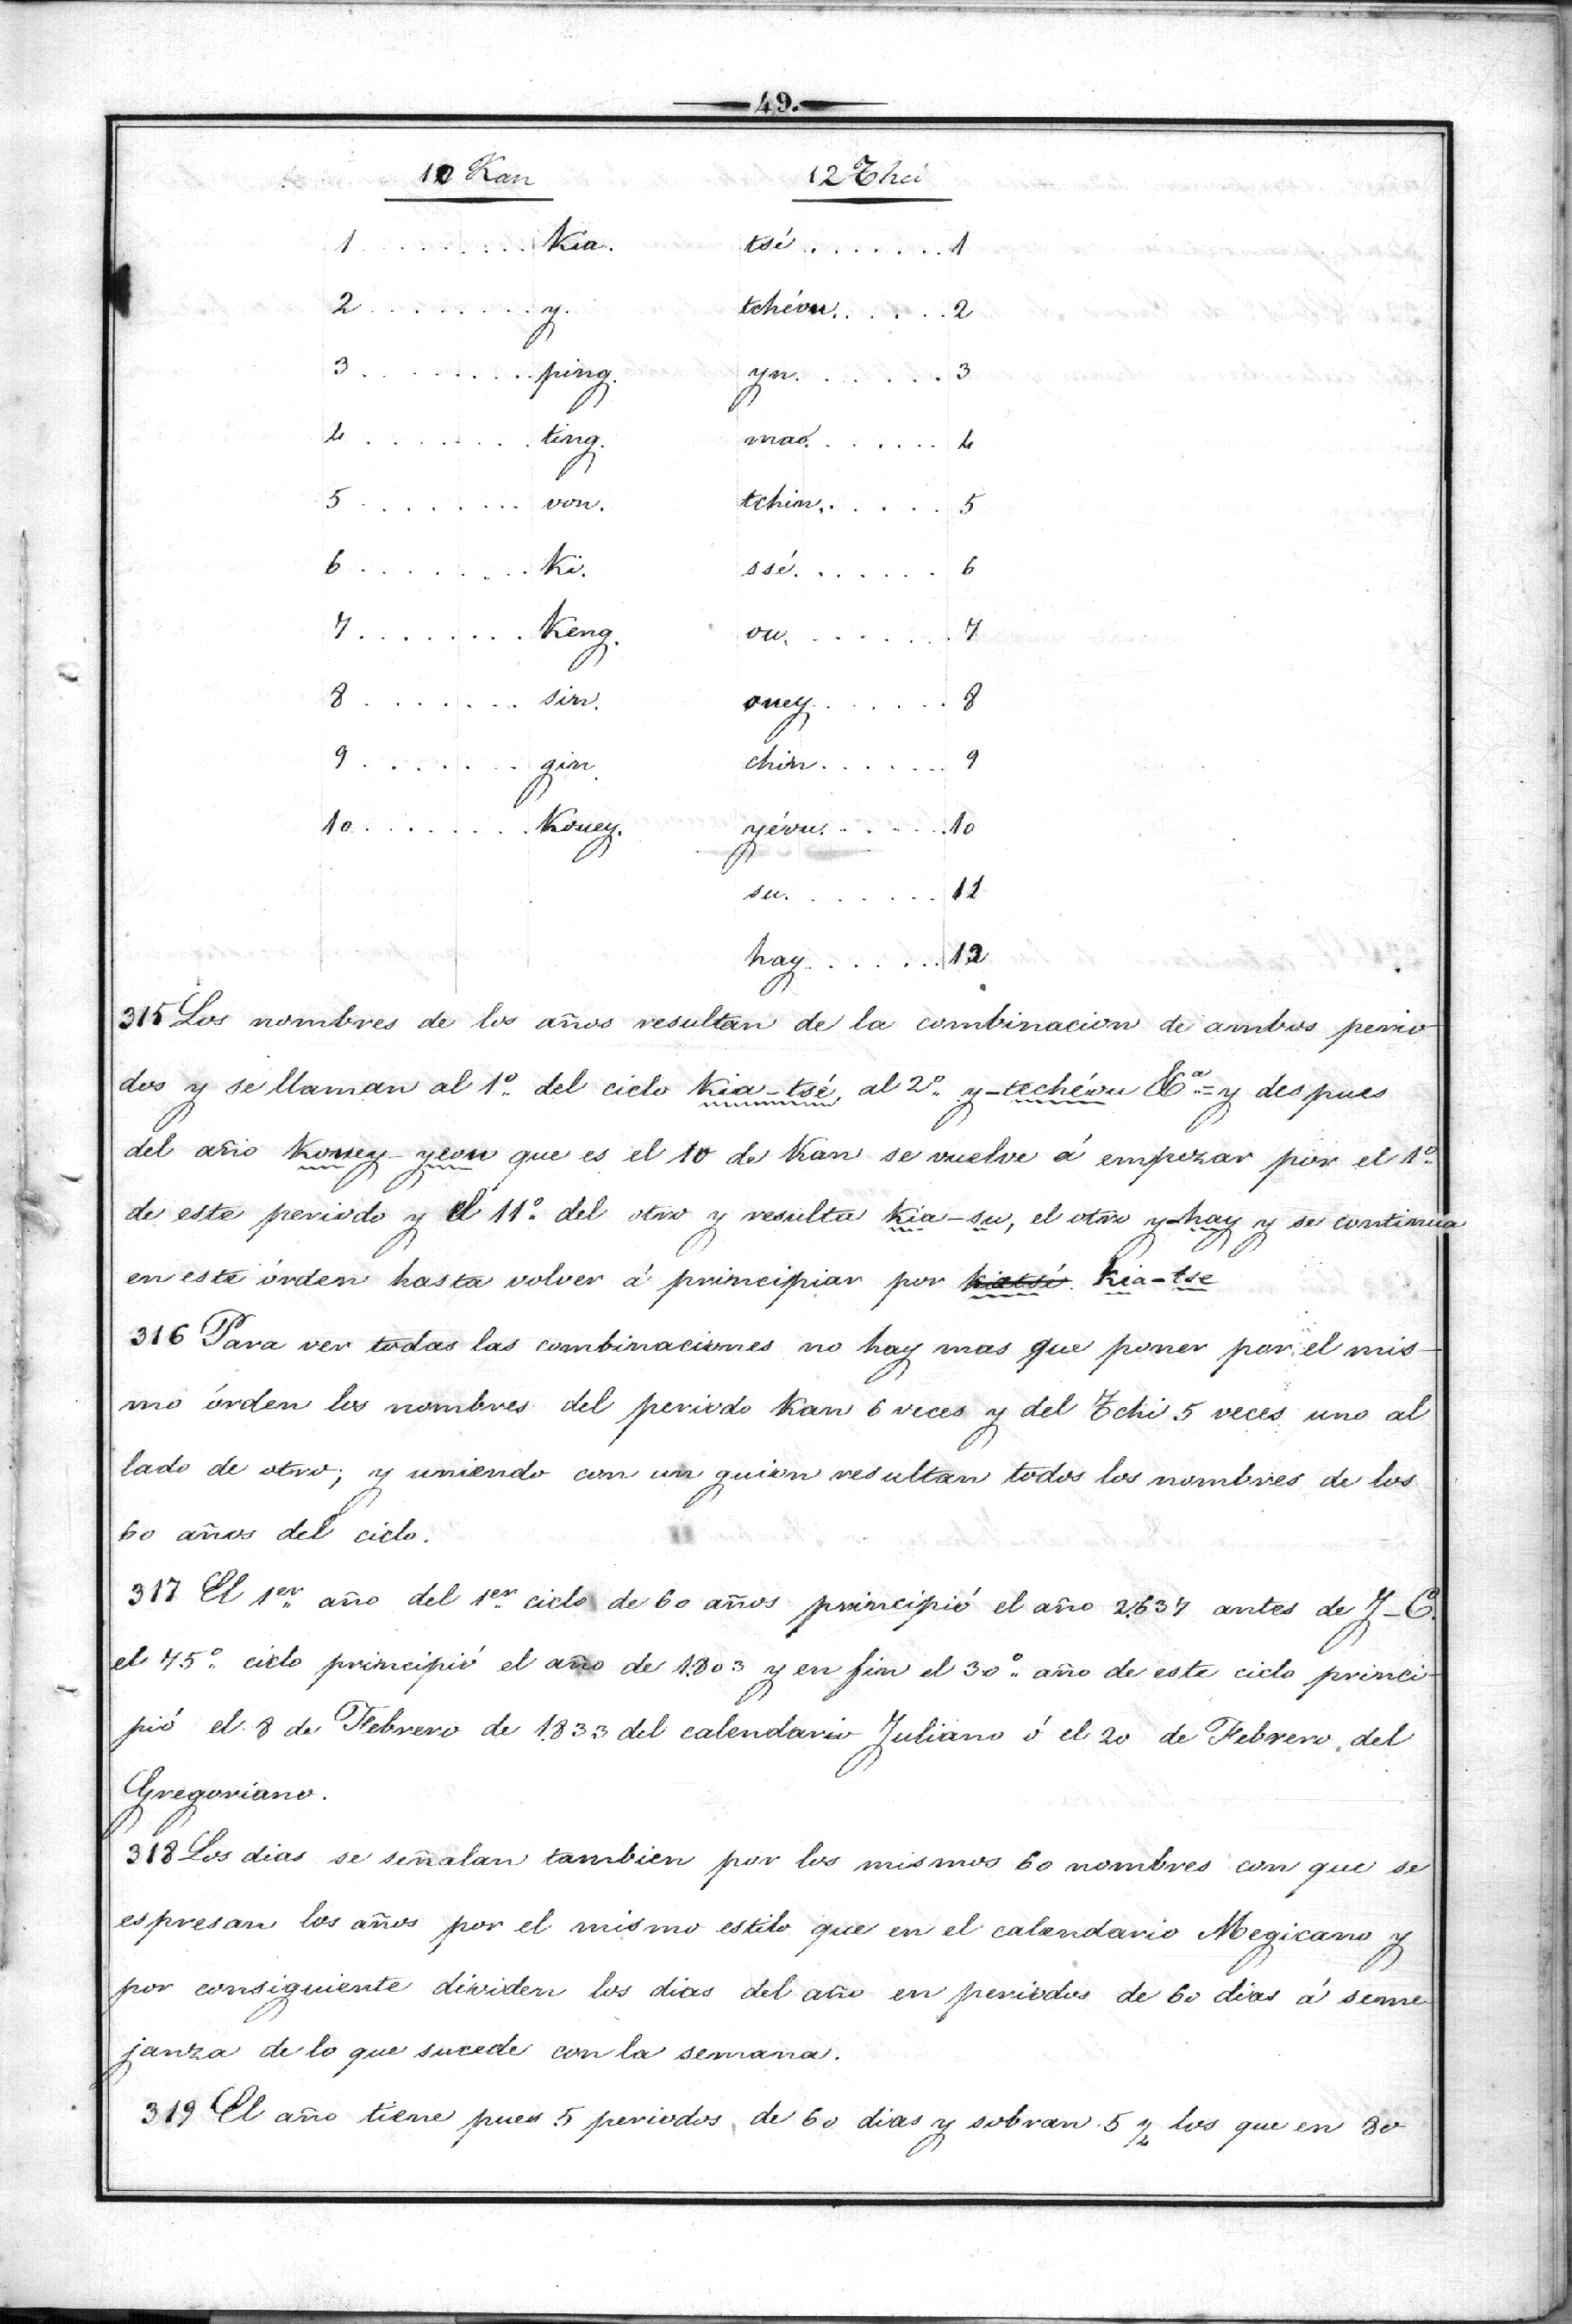 49.
10 Kan 12 Tchi
1 . . . . . . . . Kia. tsé . . . . . . . 1
2 . . . . . . . . y. tchéou. . . . . . 2
3 . . . . . . . . ping. yn. . . . . . . 3
4 . . . . . . . . ting. mao. . . . . . . 4
5 . . . . . . . . vou. tchin. . . . . . 5
6 . . . . . . . . Ki. ssé. . . . . . . 6
7 . . . . . . . . Keng. ou. . . . . . . . 7
8 . . . . . . . . sin. ouey. . . . . . . 8
9 . . . . . . . . gin. chin . . . . . . 9
10 . . . . . . . . Kouey. yéou. . . . . . 10
su. . . . . . . 11
hay. . . . . . . 12
315 Los nombres de los años resultan de la combinacion de ambos perio-
dos y se llaman al 1º del ciclo Kia-tsé, al 2º y-tchéou &ª = y despues
del año Kouey-yeou que es el 10 de Kan se vuelve á empezar por el 1º
de este periodo y el 11º del otro y resulta Kia-su, el otro y-hay y se continua
en este órden hasta volver á principiar por kiatsé. Kia-tse
316 Para ver todas las combinaciones no hay mas que poner por el mis-
mo órden los nombres del periodo Kan 6 veces y del Tchi 5 veces uno al
lado de otro; y uniendo con un guion resultan todos los nombres de los
60 años del ciclo.
317 El 1er año del 1er ciclo de 60 años principió el año 2.637 antes de J-C.
el 75º ciclo principió el año de 1.803 y en fin el 30º año de este ciclo princi-
pió el 8 de Febrero de 1.833 del calendario Juliano ó el 20 de Febrero del
Gregoriano.
318 Los dias se señalan tambien por los mismos 60 nombres con que se
espresan los años por el mismo estilo que en el calendario Megicano y
por consiguiente dividen los dias del año en periodos de 60 dias á seme-
janza de lo que sucede con la semana.
319 El año tiene pues 5 periodos de 60 dias y sobran 5 los que en 80